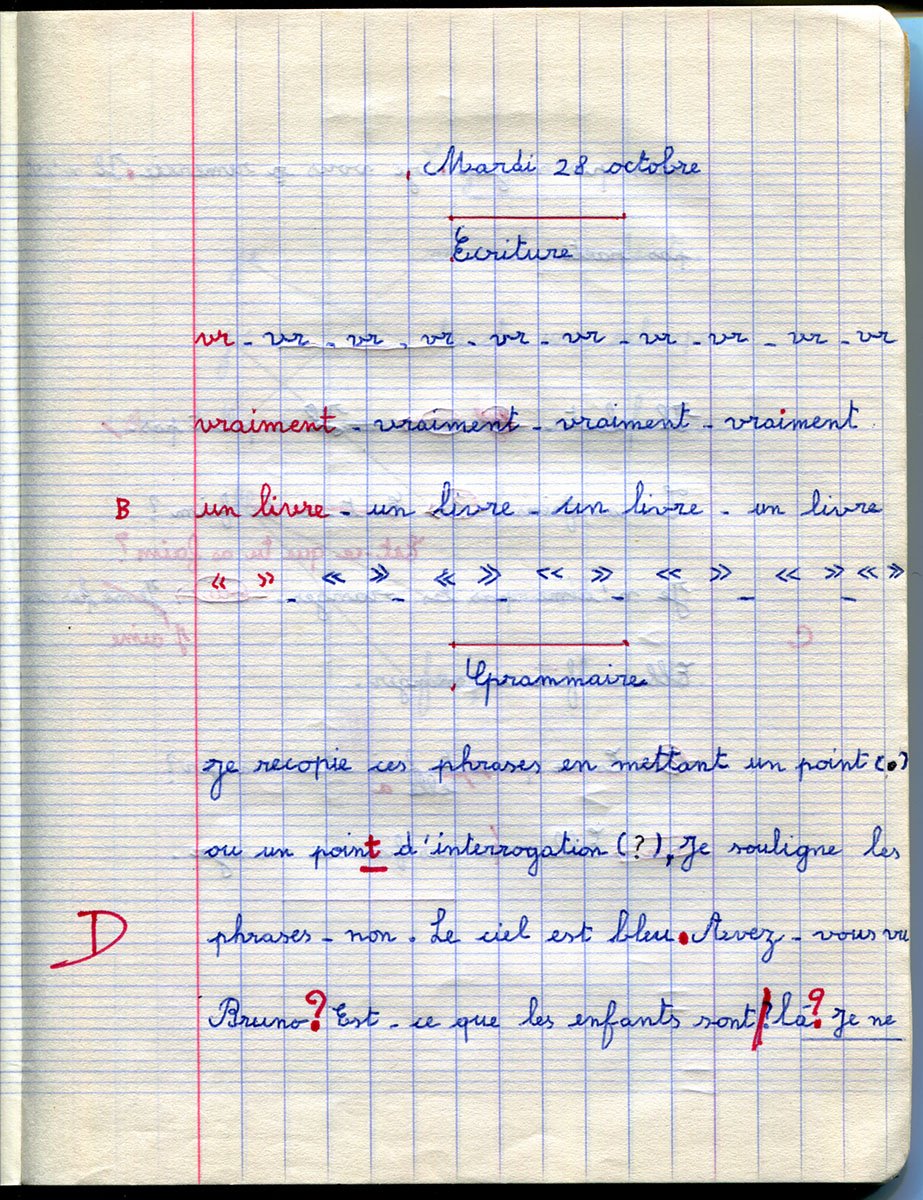 Mardi 28 octobre
Ecriture
vr - vr - vr - vr - vr - vr - vr - vr - vr - vr
vraiment - vraiment - vraiment - vraiment
B un livre - un livre - un livre - un livre
« » - « » - « » - « » - « » - « » - « »
Grammaire
Je recopie ces phrases en mettant un point (.)
ou un point d'interrogation (?), Je souligne les
D phrases - non. Le ciel est bleu. Avez - vous vu
Bruno? Est - ce que les enfants sont ? là? Je ne